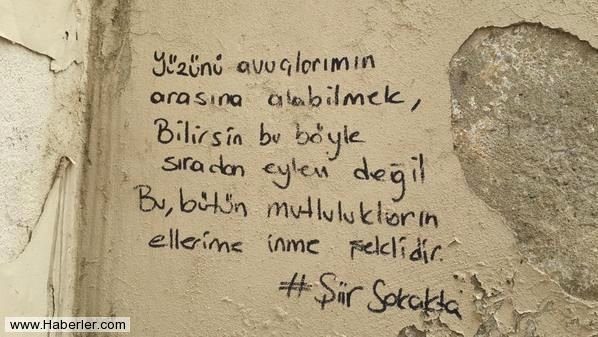 Yüzünü avuçlarımın
arasına alabilmek,
Bilirsin bu böyle
sıradan eylem değil
Bu, bütün mutlulukların
ellerime inme şeklidir.
# Şiir Sokakta
www.Haberler.com